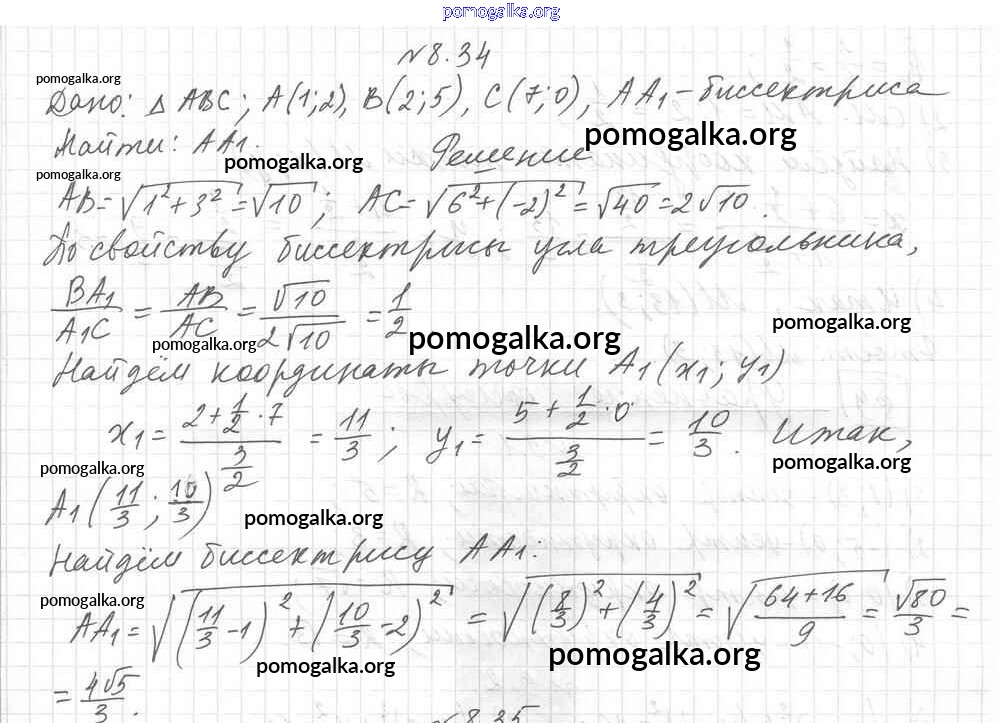 pomogalka.org
№8.34
pomogalka.org
Дано: △ ABC; A(1;2), B(2;5), C(7;0), AA₁ – биссектриса
pomogalka.org
Найти: AA₁.
pomogalka.org
Решение
pomogalka.org
AB=√(1²+3²)=√10; AC=√(6²+(-2)²)=√40=2√10.
По свойству биссектрисы угла треугольника,
BA₁/A₁C = AB/AC = √10/(2√10) = 1/2
pomogalka.org
pomogalka.org
pomogalka.org
Найдём координаты точки A₁(x₁; y₁)
x₁ = (2+1/2·7)/(3/2) = 11/3; y₁ = (5+1/2·0)/(3/2) = 10/3. Итак,
pomogalka.org
pomogalka.org
A₁(11/3; 10/3)
pomogalka.org
Найдём биссектрису AA₁:
pomogalka.org
AA₁ = √((11/3-1)²+(10/3-2)²) = √((8/3)²+(4/3)²) = √((64+16)/9) = √80/3 =
pomogalka.org
pomogalka.org
= 4√5/3.
№8.35